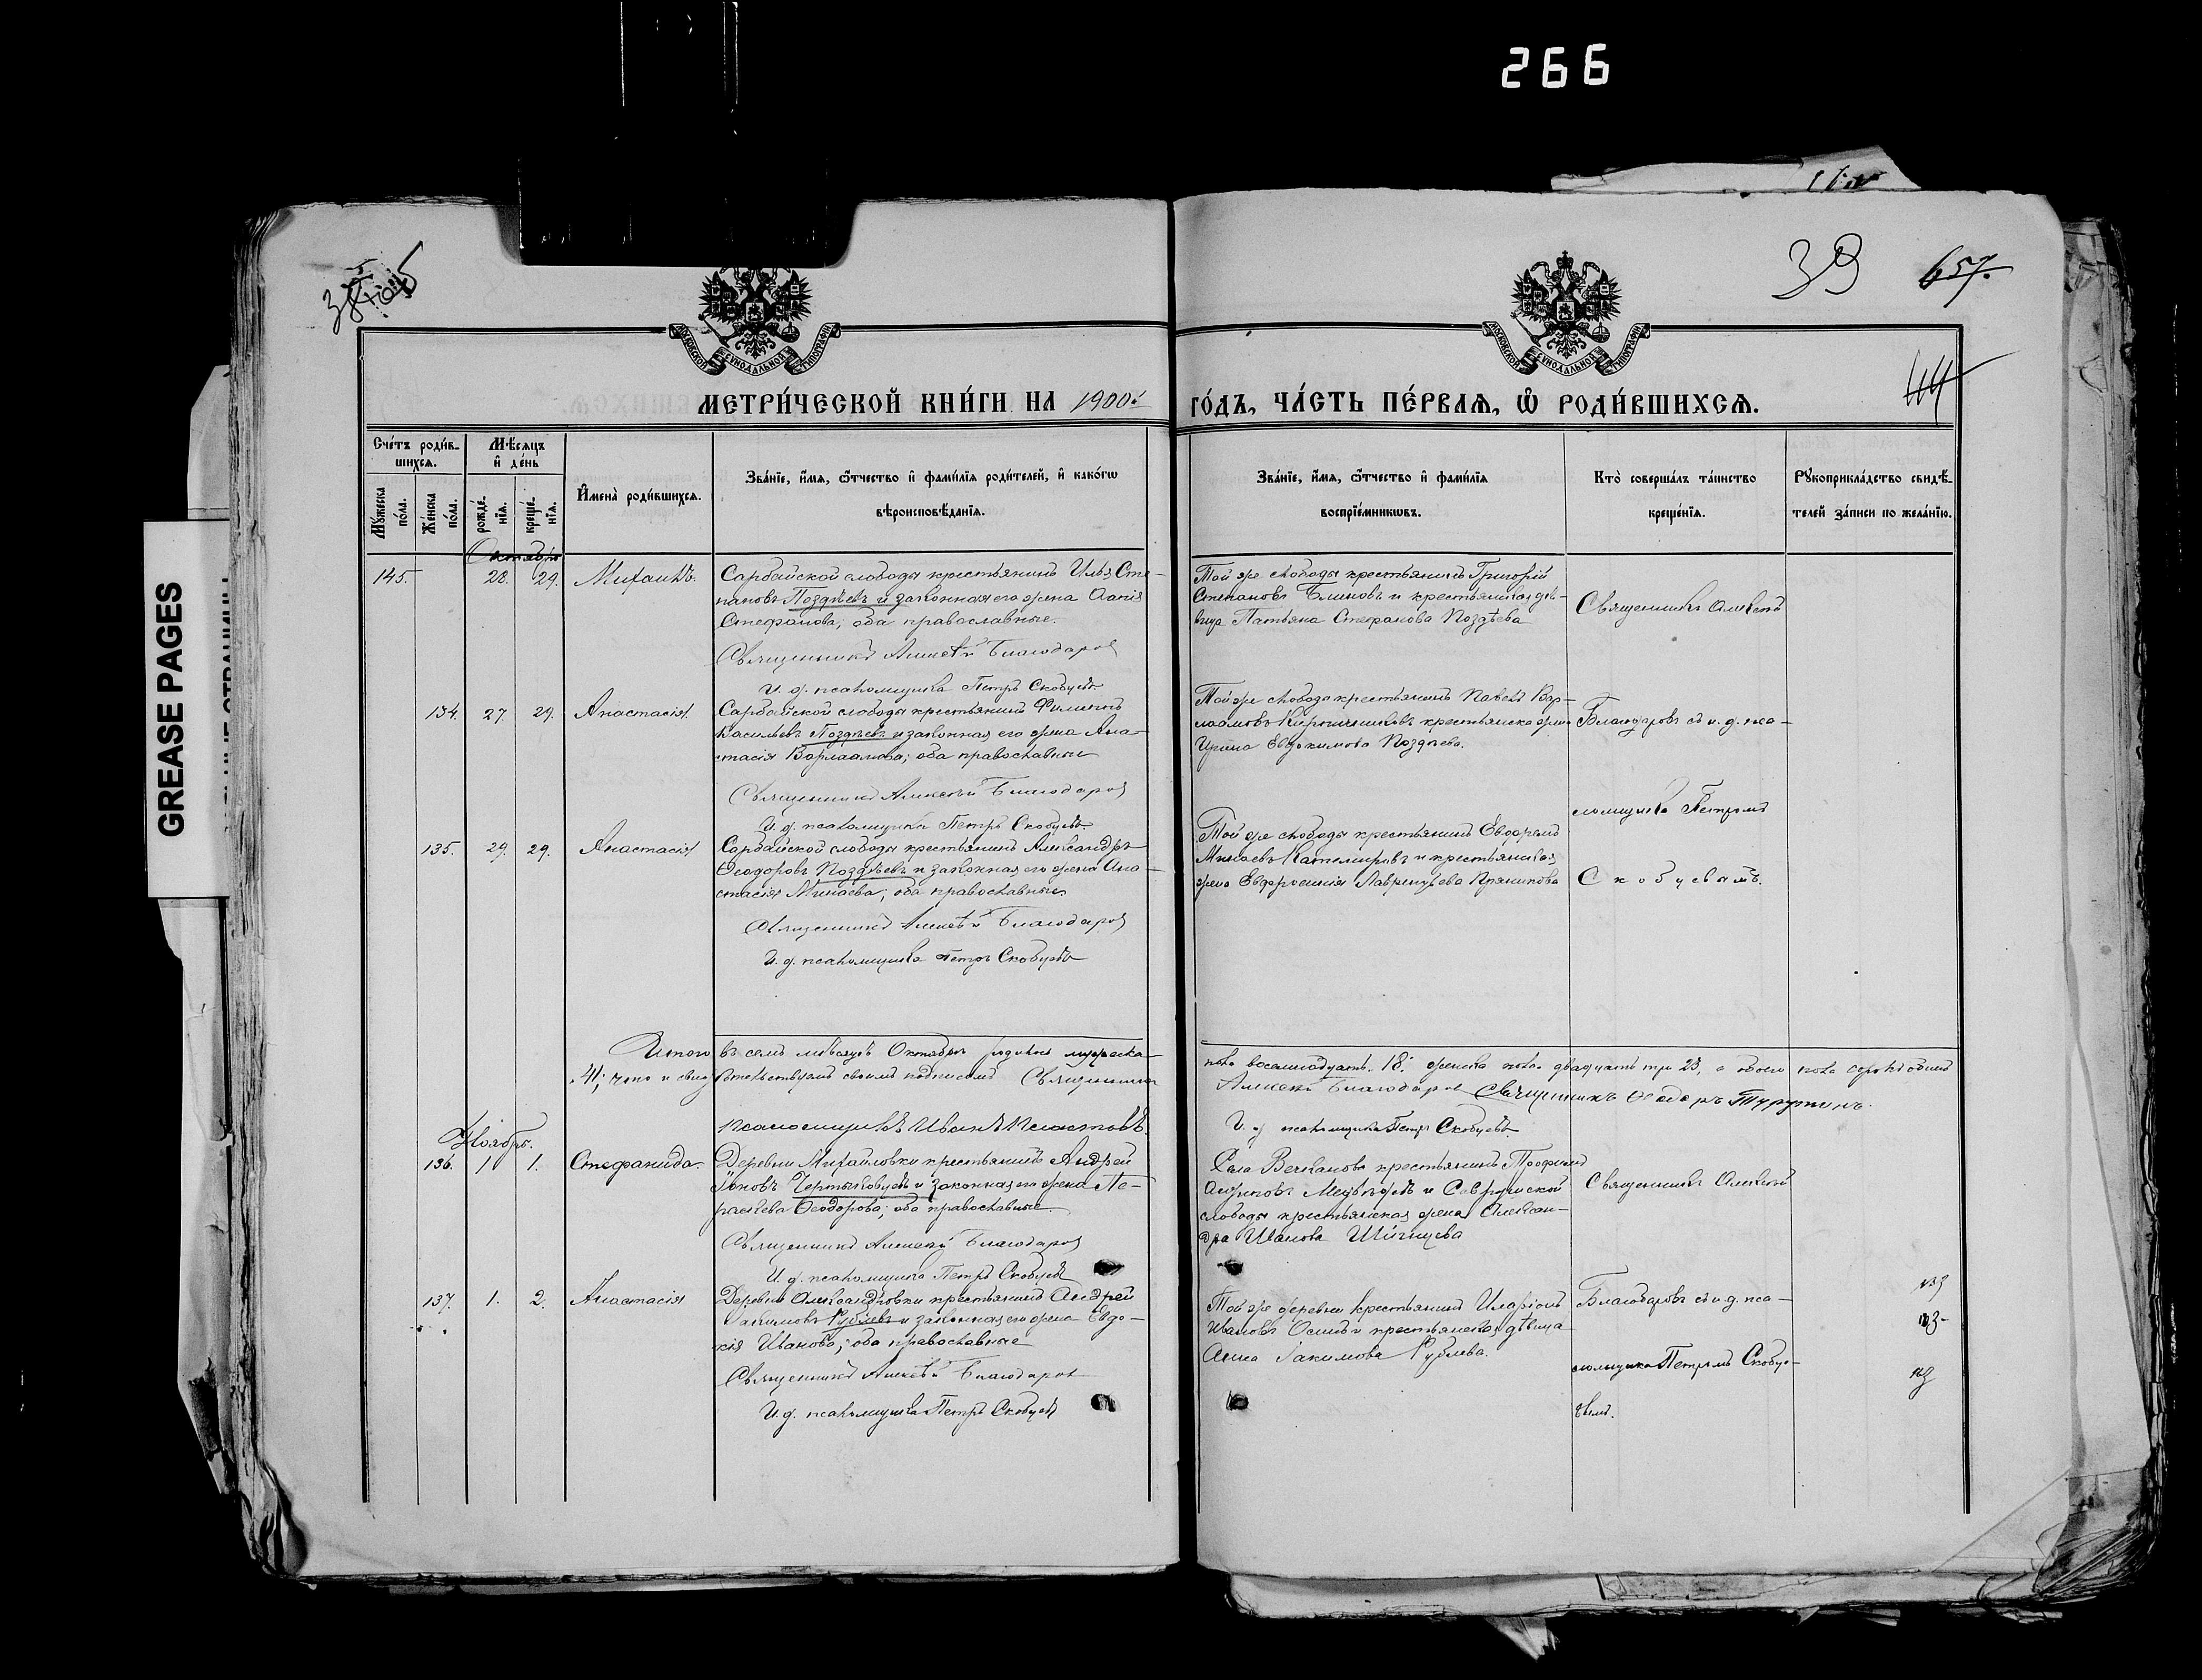 266
GREASE PAGES
39
657.
МОСКОВСКОЙ СУНОДАЛЬНОЙ ТИПОГРАФІИ
МОСКОВСКОЙ СУНОДАЛЬНОЙ ТИПОГРАФІИ
МЕТРИ́ЧЕСКОЙ КНИ́ГИ НА 1900й го́дъ, ЧА́СТЬ ПЕ́РВАѦ, Ѽ РОДИ́ВШИХСѦ.
Сче́тъ роди́в-
шихсѧ.
Мꙋ́жеска по́ла.
Же́нска по́ла.
Мѣ́сѧцъ и҆ де́нь
рожде́-нїѧ.
креще́-нїѧ.
И҆мена̀ роди́вшихсѧ.
Зва́нїе, и҆́мѧ, ѻ҆́тчество и҆ фами́лїѧ роди́телей, и҆ како́гѡ
вѣроисповѣ́данїѧ.
Зва́нїе, и҆́мѧ, ѻ҆́тчество и҆ фами́лїѧ
воспрїе́мникѡвъ.
Кто̀ соверша́лъ та́инство
креще́нїѧ.
Рꙋкоприкла́дство свидѣ́-
телей за́писи по жела́нїю.
Октябрь
145. 28. 29. Михаилъ. Сарбайской слободы крестьянинъ Илья Сте-
пановъ Поздѣевъ и законная его жена
Стефанова; оба православные.
Священникъ Алексѣй Благодаровъ
И. д. псаломщика Петръ Скобцевъ
Той же слободы крестьянинъ Григорій
Степановъ Блиновъ и крестьянская дѣ-
вица Татьяна Стефанова Поздѣева
Священникъ Алексѣй
134. 27. 29. Анастасія. Сарбайской слободы крестьянинъ Филиппъ
Васильевъ Поздѣевъ и законная его жена Ана-
стасія Варлаамова; оба православные
Священникъ Алексѣй Благодаровъ
И. д. псаломщика Петръ Скобцевъ
Той же слободы крестьянинъ Павелъ Вар-
лаамовъ и крестьянская жена
Ирина Евдокимова Поздѣева.
Благодаровъ съ и. д. пса-
ломщика Петромъ
135. 29. 29. Анастасія Сарбайской слободы крестьянинъ Александръ
Ѳеодоровъ Поздѣевъ и законная его жена Ана-
стасія Минаева; оба православные
Священникъ Алексѣй Благодаровъ
И. д. псаломщика Петръ Скобцевъ
Той же слободы крестьянинъ Евфремъ
Минаевъ и крестьянская
жена Евфросинія Лаврентьева Пряникова
Скобцевымъ.
Итого въ семъ мѣсяцѣ Октябрѣ родилось мужеска-
пола восемнадцать 18. женска пола двадцать три 23, а обоего пола сорокъ одинъ
41; что и свидѣтельствуемъ своимъ подписомъ Священникъ
Алексѣй Благодаровъ Священникъ Ѳеодоръ
Псаломщикъ Иванъ
И. д. псаломщика Петръ Скобцевъ.
Ноябрь.
136. 1 1. Стефанида. Деревни Михайловки крестьянинъ Андрей
Іоновъ и законная его жена Па-
раскева Ѳеодорова; оба православные
Священникъ Алексѣй Благодаровъ
И. д. псаломщика Петръ Скобцевъ
Села Вечканова крестьянинъ Трофимъ
и Саврушской
слободы крестьянская жена Алексан-
дра Иванова
Священникъ Алексѣй
137. 1. 2. Анастасія Деревни Александровки крестьянинъ Андрей
Іакимовъ Рублевъ и законная его жена Евдо-
кія Иванова; оба православные
Священникъ Алексѣй Благодаровъ
И. д. псаломщика Петръ Скобцевъ
Той же деревни крестьянинъ Иларіонъ
Ивановъ и крестьянская дѣвица
Анна Іакимова Рублева.
Благодаровъ съ и. д. пса-
ломщика Петромъ Скобце-
вымъ.